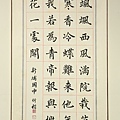 颯颯西風滿院栽蕊
寒香冷蝶難來他年
我若為青帝報與桃
花一處開
新埔國中